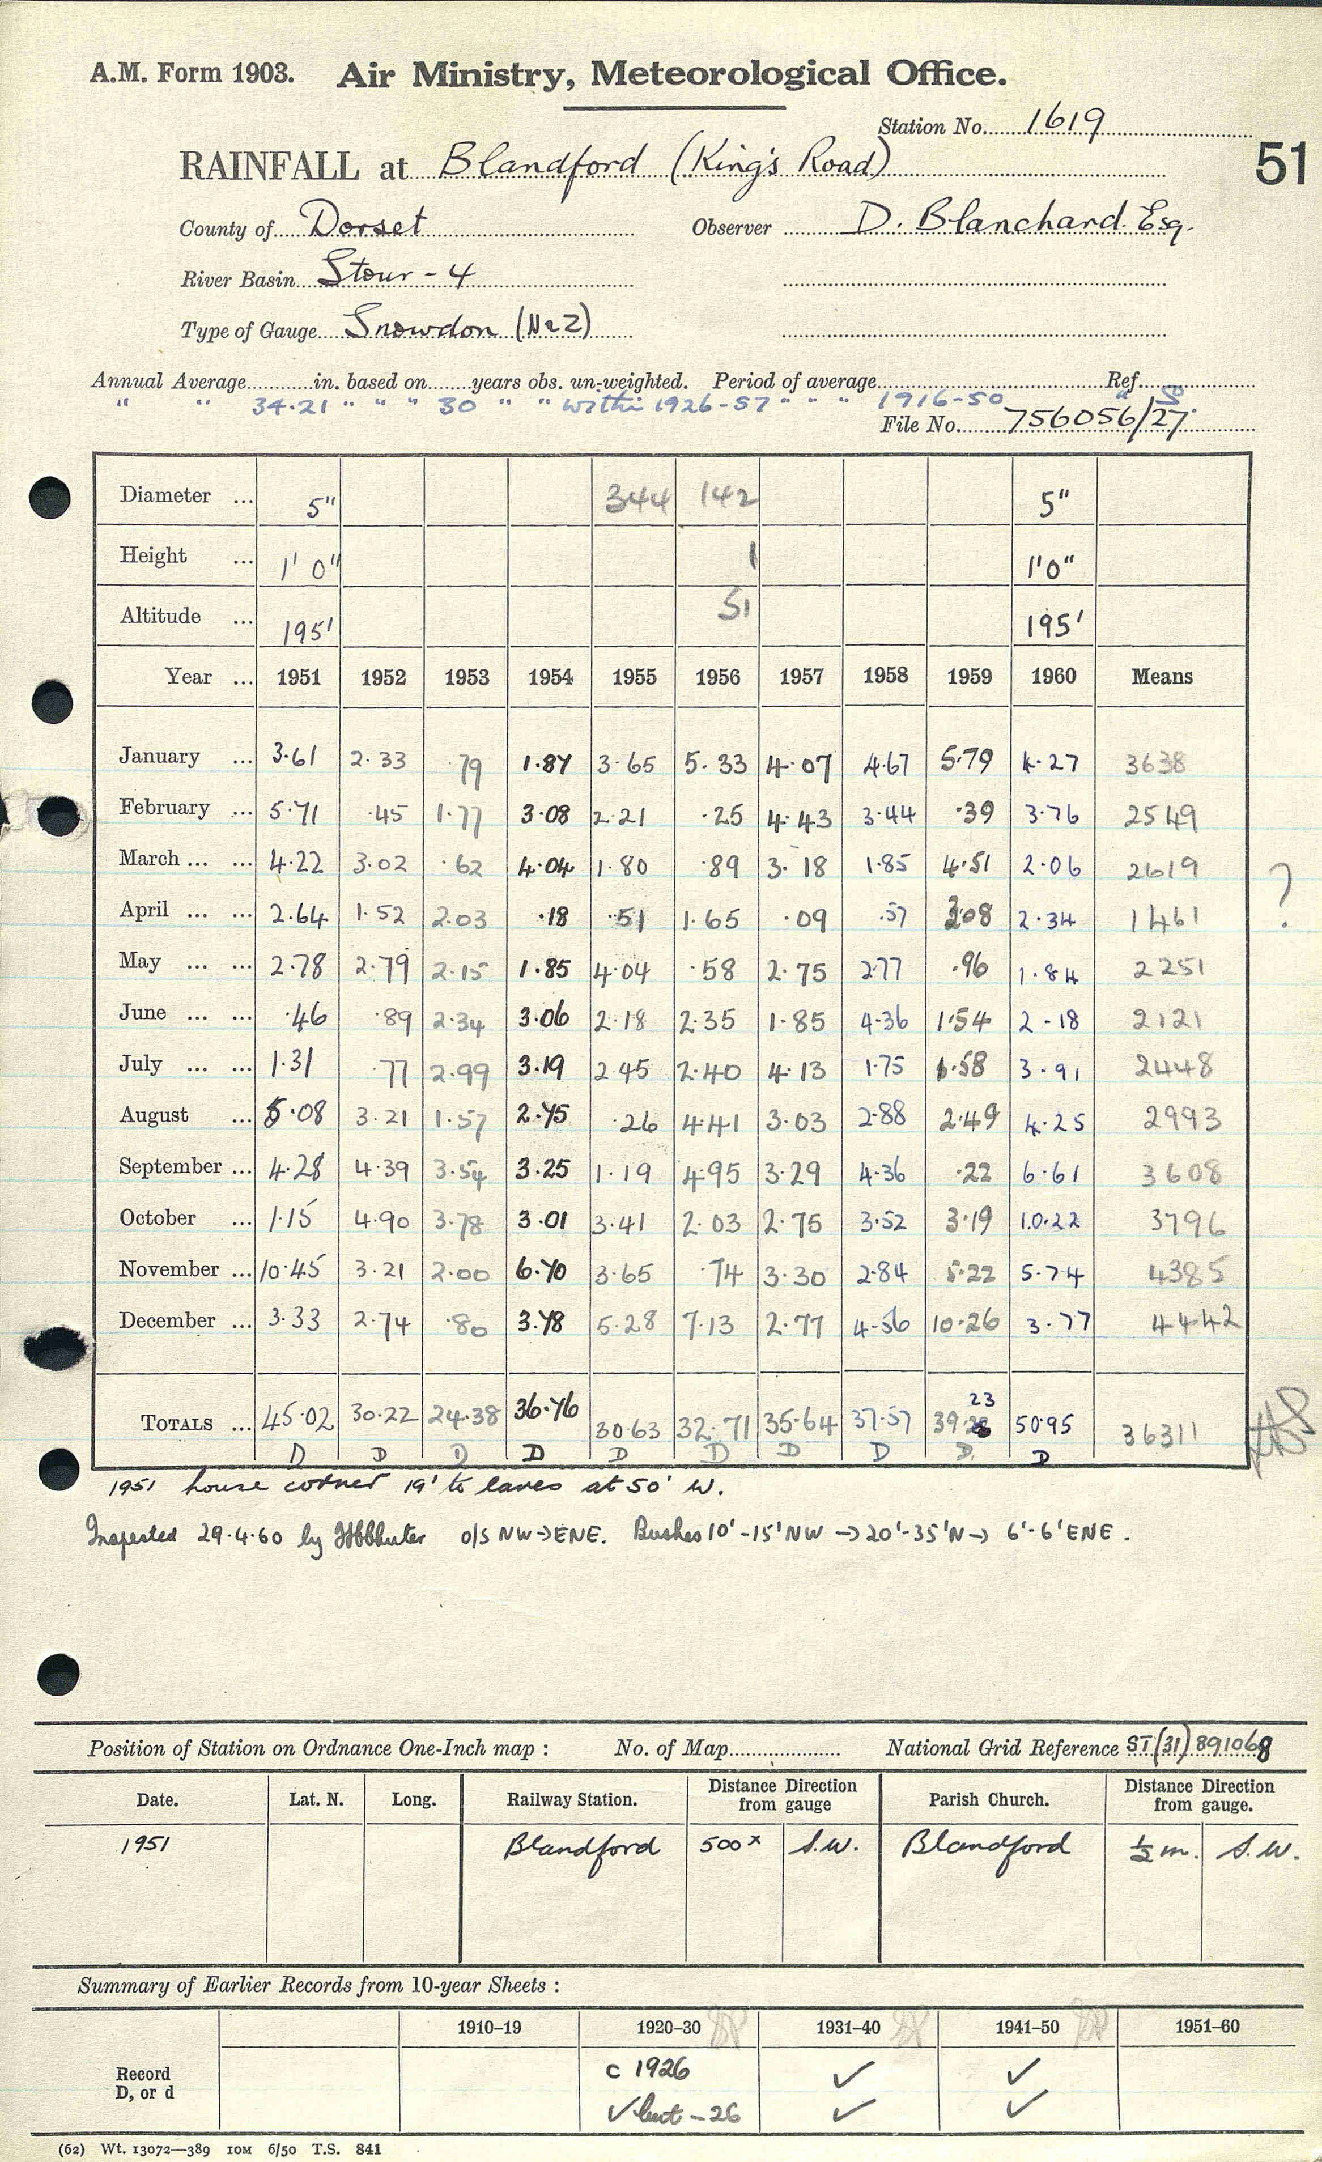 A.M. Form 1903. Air Ministry, Meteorological Office.
Station No. 1619
51
RAINFALL at Blandford (King's Road)
County of Dorset Observer D. Blanchard Esq.
River Basin Stour - 4
Type of Gauge Snowdon (No 2)
Annual Average in. based on years obs. un-weighted. Period of average Ref.
" " 34.21 " " " 30 " " " within 1926-57 " " " 1916-50
File No. 756056/27
Diameter ... 5" 344 142 5"
Height ... 1' 0" 1 1'0"
Altitude ... 195' 51 195'
Year ... 1951 1952 1953 1954 1955 1956 1957 1958 1959 1960 Means
January ... 3.61 2.33 .79 1.87 3.65 5.33 4.07 4.67 5.79 4.27 3638
February ... 5.71 .45 1.77 3.08 2.21 .25 4.43 3.44 .39 3.76 2549
March ... ... 4.22 3.02 .62 4.04 1.80 .89 3.18 1.85 4.51 2.06 2619 ?
April ... ... 2.64 1.52 2.03 .18 .51 1.65 .09 .57 3.08 2.34 1461
May ... ... 2.78 2.79 2.15 1.85 4.04 .58 2.75 2.77 .96 1.84 2251
June ... ... .46 .89 2.34 3.06 2.18 2.35 1.85 4.36 1.54 2-18 2121
July ... ... 1.31 .77 2.99 3.19 2 45 2.40 4.13 1.75 1.58 3.91 2448
August ... 5.08 3.21 1.57 2.75 .26 4.41 3.03 2.88 2.49 4.25 2993
September ... 4.28 4.39 3.54 3.25 1.19 4.95 3.29 4.36 .22 6.61 3608
October ... 1.15 4.90 3.78 3.01 3.41 2.03 2.75 3.52 3.19 10.22 3796
November ... 10.45 3.21 2.00 6.70 3.65 .74 3.30 2.84 5.22 5.74 4385
December ... 3.33 2.74 .80 3.78 5.28 7.13 2.77 4.56 10.26 3.77 4442
23
TOTALS ... 45.02 30.22 24.38 36.76 30.63 32.71 35.64 37.57 39. 50.95 36311
D D D D D D D D D D
1951 house corner 19' to eaves at 50' W.
Inspected 29.4.60 by o/s NW→ENE. Bushes 10'-15'NW → 20'-35'N → 6'-6'ENE.
Position of Station on Ordnance One-Inch map : No. of Map National Grid Reference ST(31)891068
Date. Lat. N. Long. Railway Station. Distance Direction from gauge Parish Church. Distance Direction from gauge.
1951 Blandford 500 x S.W. Blandford ½ m. S.W.
Summary of Earlier Records from 10-year Sheets :
1910–19 1920-30 1931-40 1941-50 1951–60
Record c 1926 ✓ ✓
D, or d ✓ but - 26 ✓ ✓
(62) Wt. 13072—389 10M 6/50 T.S. 841